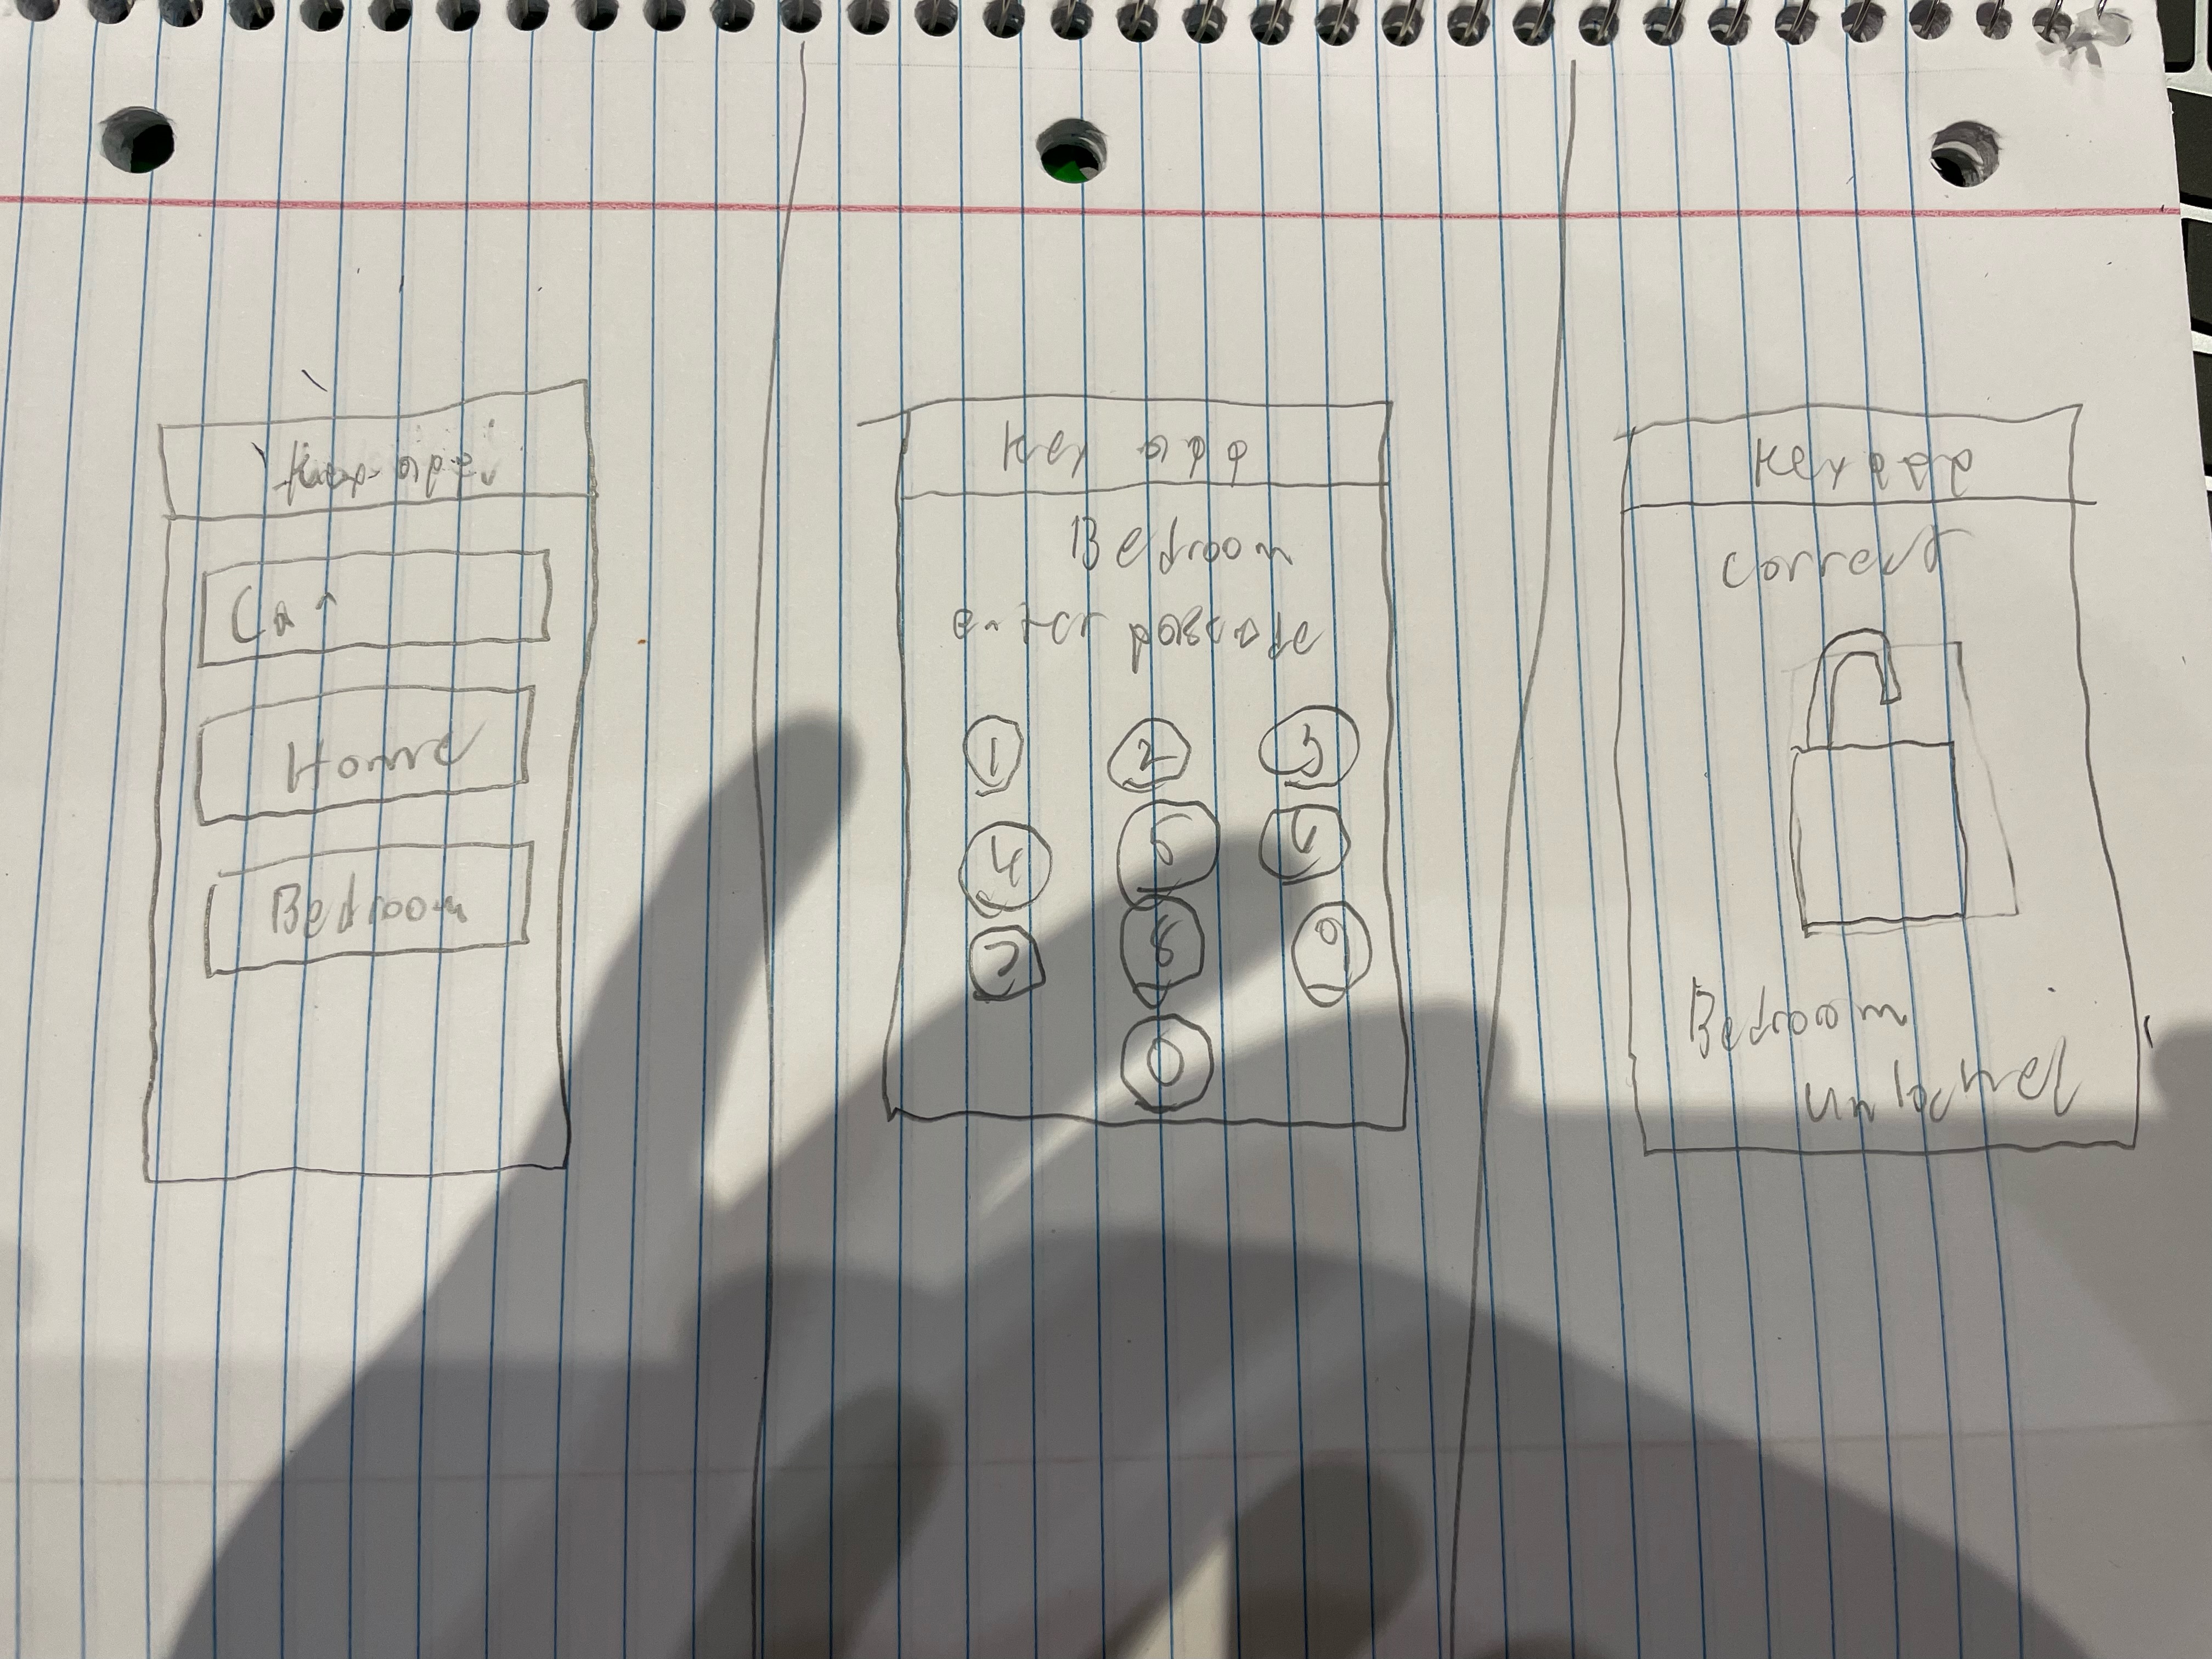 Key app
Car
Home
Bedroom
Key app
Bedroom
enter passcode
1 2 3
4 5 6
7 8 9
0
Key app
correct
Bedroom
unlocked